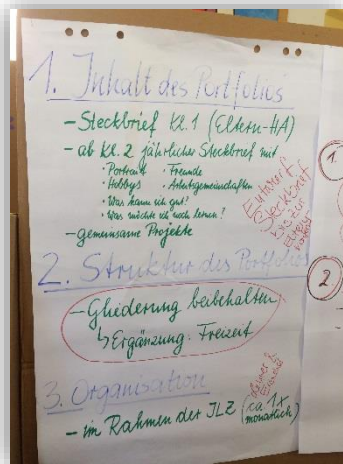 1. Inhalt des Portfolios
- Steckbrief Kl. 1 (Eltern-HA)
- ab Kl. 2 jährlicher Steckbrief mit
· Portrait · Freunde
· Hobbys · Arbeitsgemeinschaften
· Was kann ich gut?
· Was möchte ich noch lernen?
- gemeinsame Projekte
Entwurf
Steckbrief
bis zur
2. Struktur des Portfolios
- Gliederung beibehalten
↳ Ergänzung: Freizeit
3. Organisation
- im Rahmen der JLZ (ca. 1x
monatlich)
1.
2